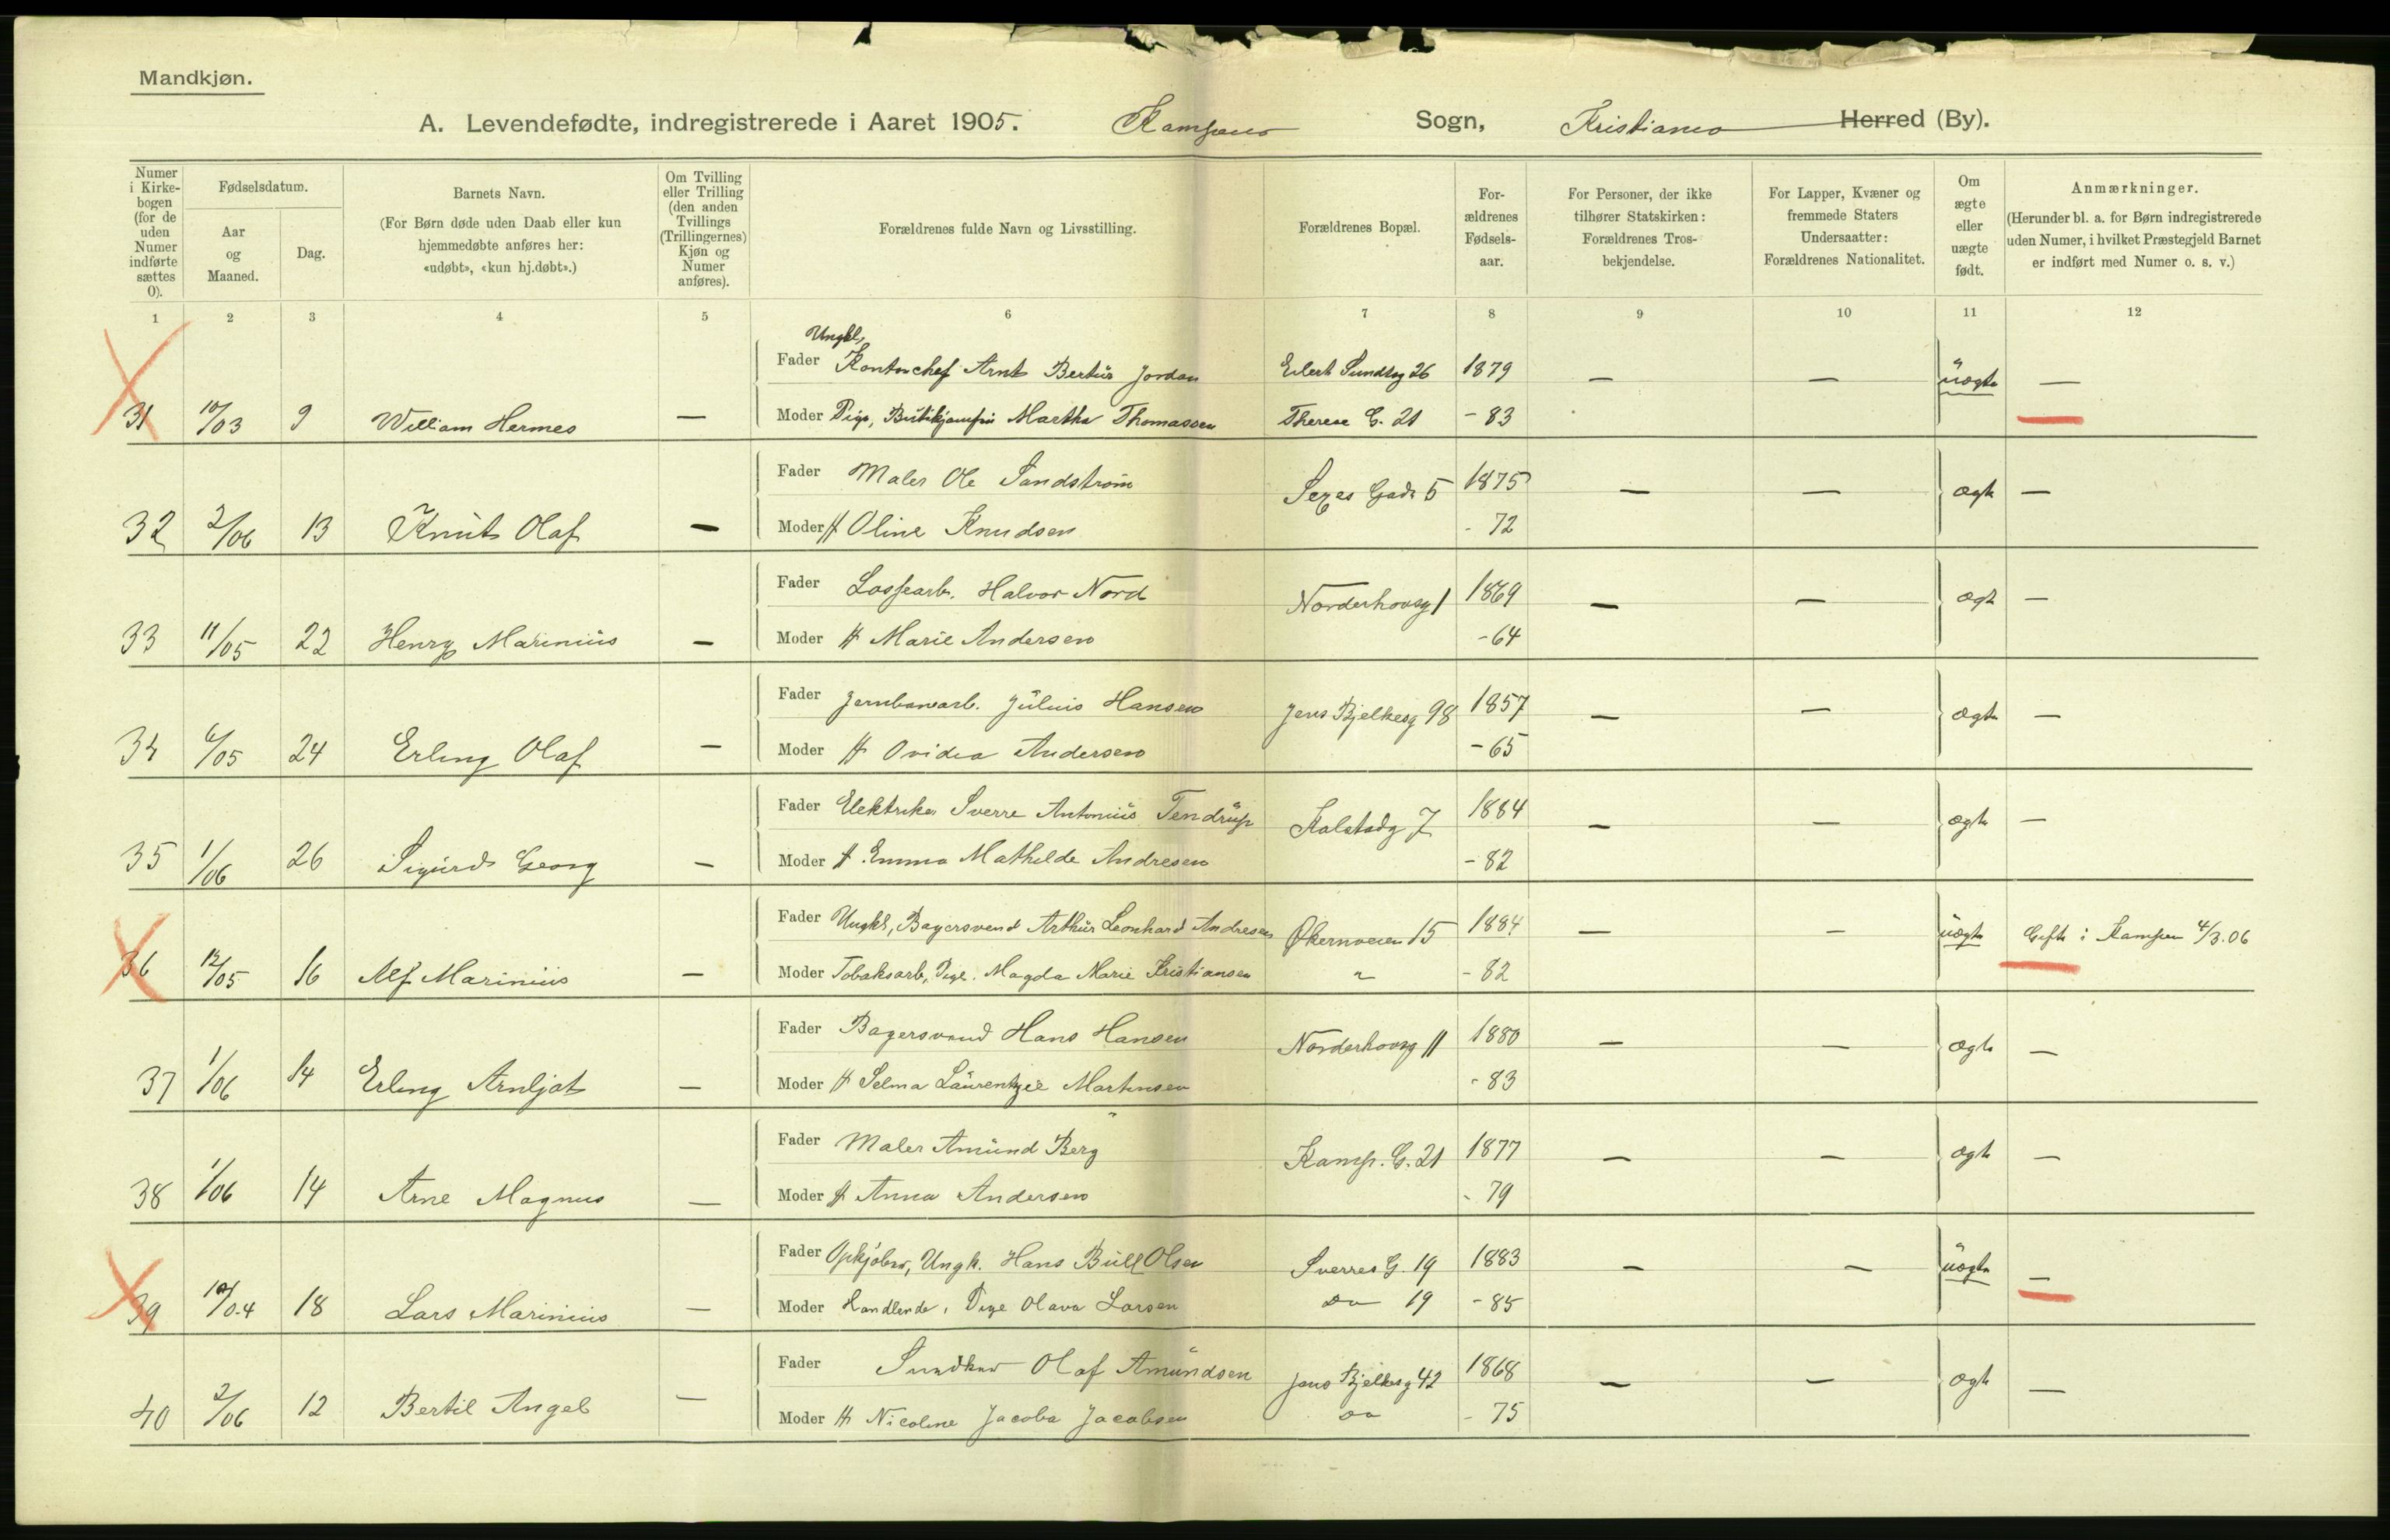 Mandkjøn.
A. Levendefødte, indregistrerede i Aaret 1905. Kampens Sogn, Kristiania Herred (By).
Numer i Kirkebogen (for de uden Numer indførte sættes 0).
Fødselsdatum.
Aar og Maaned.
Dag.
Barnets Navn.
(For Børn døde uden Daab eller kun hjemmedøbte anføres her: «udøbt», «kun hj.døbt».)
Om Tvilling eller Trilling (den anden Tvillings (Trillingernes) Kjøn og Numer anføres).
Forældrenes fulde Navn og Livsstilling.
Forældrenes Bopæl.
Forældrenes Fødselsaar.
For Personer, der ikke tilhører Statskirken: Forældrenes Trosbekjendelse.
For Lapper, Kvæner og fremmede Staters Undersaatter: Forældrenes Nationalitet.
Om ægte eller uægte født.
Anmærkninger.
(Herunder bl. a. for Børn indregistrerede uden Numer, i hvilket Præstegjeld Barnet er indført med Numer o. s. v.)
1 2 3 4 5 6 7 8 9 10 11 12
Ungkl,
Fader Kontorchef Arnt Bertus Jordan Eilert Sundtsg 26 1879 — — uægte —
31 10/03 9 William Hermes — Moder Pige, Butikjomfru Martha Thomassen Therese G. 21 - 83
Fader Maler Ole Sandstrøm Sexes Gade 5 1875 — — ægte —
32 2/06 13 Knut Olaf — Moder H Oline Knudsen - 72
Fader Lossearb. Halvor Nord Norderhovsg 1 1869 — — ægt —
33 11/05 22 Henry Marinius — Moder H Marie Andersen - 64
Fader Jernbanearb. Julius Hansen Jens Bjelkesg 98 1857 — — ægte —
34 6/05 24 Erling Olaf — Moder H Ovidia Andersen - 65
Fader Elektriker Sverre Antonius Tendrup Kalstadg 7 1884 — — ægte —
35 1/06 26 Sigurd Georg — Moder H Emma Mathilde Andresen - 82
Fader Ungkl, Bagersvend Arthur Leonhard Andresen Økernveien 15 1884 — — uægte Gifte i Kampen 4/3.06
36 12/05 16 Alf Marinius — Moder Tobaksarb, Pige. Magda Marie Kristiansen " - 82
Fader Bagersvend Hans Hansen Norderhovsg 11 1880 — — ægte —
37 1/06 14 Erling Arnljot — Moder H Selma Laurentzie Martinsen - 83
Fader Maler Amund Berg Kamp. G. 21 1877 — — ægte —
38 1/06 14 Arne Magnus — Moder H Anna Andersen - 79
Fader Opkjøber, Ungk. Hans Bull Olsen Sverres G. 19 1883 — — uægte —
39 10/04 18 Lars Marinius — Moder Handlende, Pige Olava Larsen Do 19 - 85
Fader Olaf Amundsen Jens Bjelkesg 42 1868 — — ægte —
40 2/06 12 Bertil Angel — Moder H Nicoline Jacoba Jacobsen Do - 75